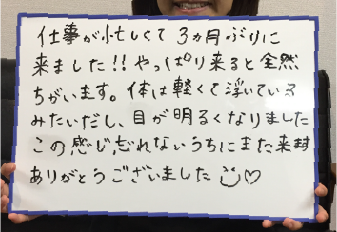 仕事が忙しくて3ヵ月ぶりに
来ました!!やっぱり来ると全然
ちがいます。体は軽くて浮いている
みたいだし、目が明るくなりました
この感じ忘れないうちにまた来ます
ありがとうございました